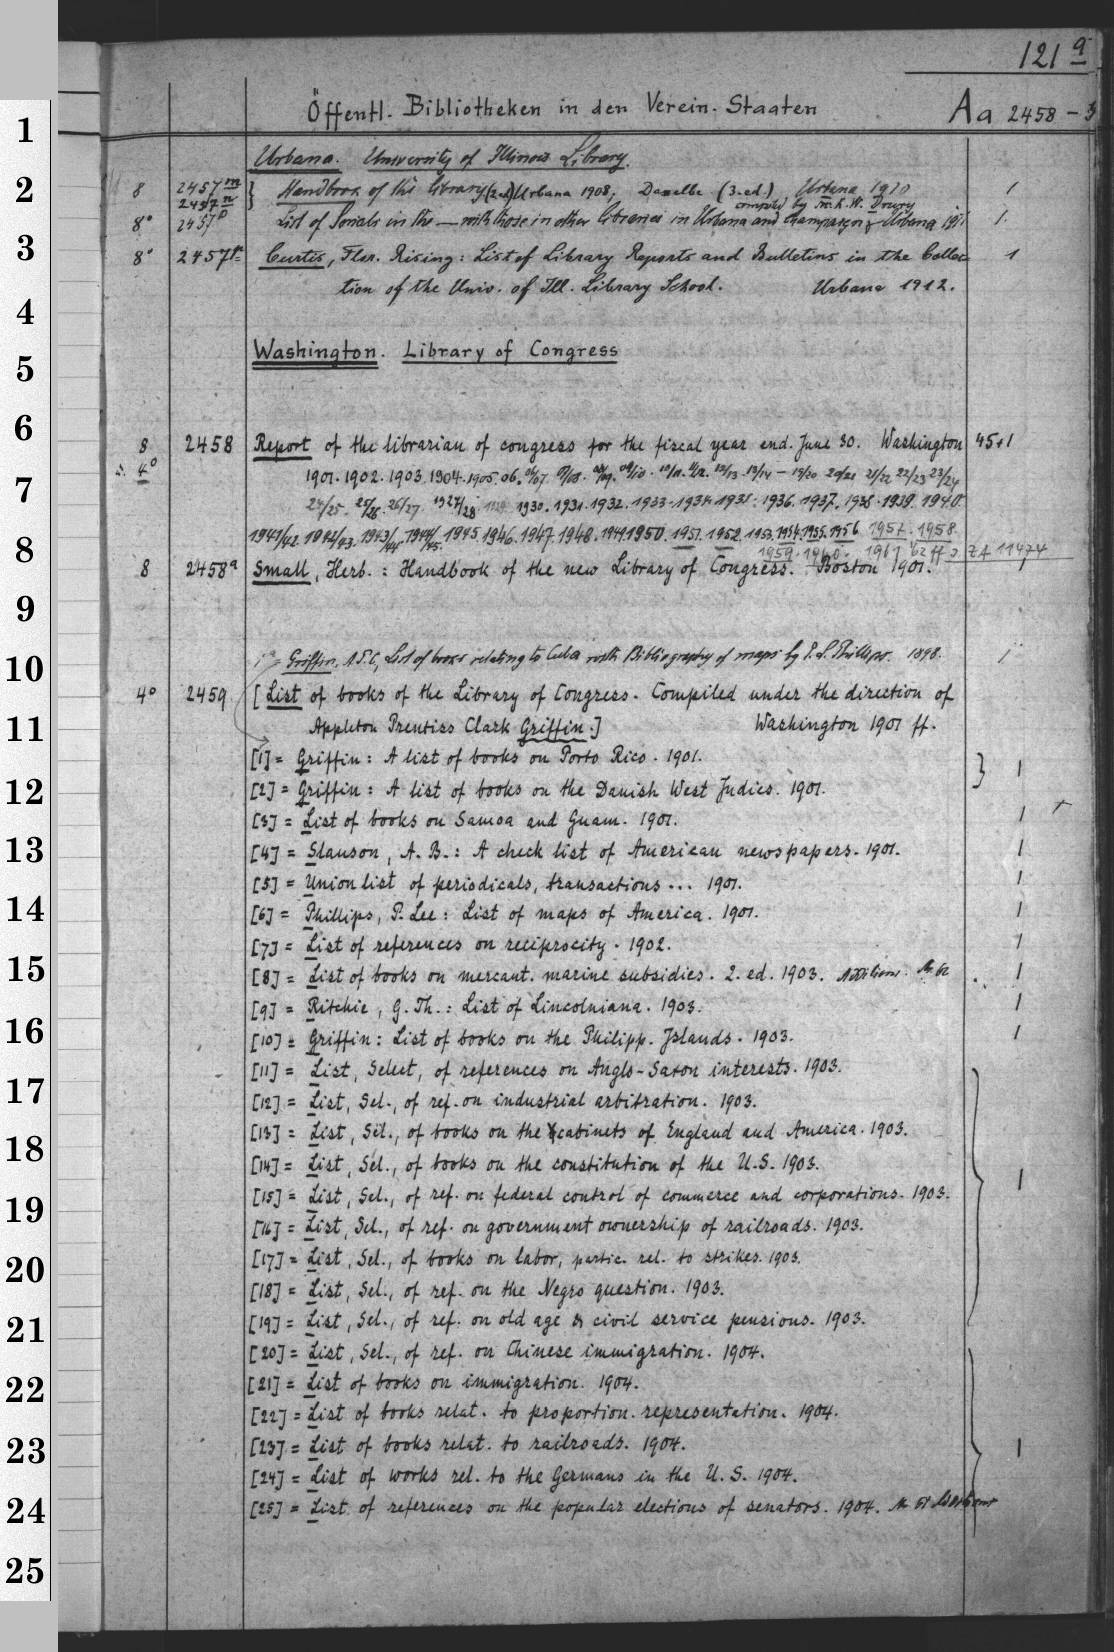 121 a
Öffentl. Bibliotheken in den Verein. Staaten Aa 2458 - 
1
Urbana. University of Illinois Library.
2
8 2457m 2457n } Handbook of the library (2ed) Urbana 1908; Daselbe (3. ed.) Urbana 1910 1
compiled by F. K. W. Drury
8° 2457p List of Serials in the — with those in other libraries in Urbana and Champaign Urbana 1911 1.
3
8° 2457r Curtis, Flor. Rising: List of Library Reports and Bulletins in the Collec- 1
tion of the Univ. of Ill. Library School. Urbana 1912.
4
5
Washington. Library of Congress
6
8 2458 Report of the librarian of congress for the fiscal year end. June 30. Washington 45+1
4°
1901. 1902. 1903. 1904. 1905. 06. 06/07. 07/08. 08/09. 09/10. 10/11. 11/12. 12/13 13/14 - 19/20 20/21 21/22 22/23 23/24
7
24/25. 25/26. 26/27 1927/28 1930. 1931. 1932. 1933. 1934. 1935. 1936. 1937. 1938. 1939. 1940.
1941/42. 1942/43. 1943/44. 1944/45. 1945. 1946. 1947. 1948. 1949. 1950. 1951. 1952. 1953. 1954. 1955. 1956 1957. 1958.
8
1959. 1960. 1961 62 ff s. ZA 11474
8 2458a Small, Herb.: Handbook of the new Library of Congress. Boston 1901. 1
9
10
Griffin, A.P.C., List of books relating to Cuba with Bibliography of maps by P. L. Phillips. 1898. 1
4° 2459 [List of books of the Library of Congress. Compiled under the direction of
11
Appleton Prentiss Clark Griffin.] Washington 1901 ff.
[1] = Griffin: A list of books on Porto Rico. 1901. } 1
12
[2] = Griffin: A list of books on the Danish West Indies. 1901.
[3] = List of books on Samoa and Guam. 1901. 1
13
[4] = Slauson, A. B.: A check list of American newspapers. 1901. 1
[5] = Union list of periodicals, transactions ... 1901. 1
14
[6] = Phillips, P. Lee: List of maps of America. 1901. 1
[7] = List of references on reciprocity. 1902. 1
15
[8] = List of books on mercant. marine subsidies. 2. ed. 1903. 1
[9] = Ritchie, G. Th.: List of Lincolniana. 1903. 1
16
[10] = Griffin: List of books on the Philipp. Islands. 1903. 1
[11] = List, Select, of references on Anglo-Saxon interests. 1903.
17
[12] = List, Sel., of ref. on industrial arbitration. 1903.
[13] = List, Sel., of books on the cabinets of England and America. 1903.
18
[14] = List, Sel., of books on the constitution of the U.S. 1903.
[15] = List, Sel., of ref. on federal control of commerce and corporations. 1903. 1
19
[16] = List, Sel., of ref. on government ownership of railroads. 1903.
[17] = List, Sel., of books on labor, partic. rel. to strikes. 1903.
20
[18] = List, Sel., of ref. on the Negro question. 1903.
[19] = List, Sel., of ref. on old age & civil service pensions. 1903.
21
[20] = List, Sel., of ref. on Chinese immigration. 1904.
[21] = List of books on immigration. 1904.
22
[22] = List of books relat. to proportion. representation. 1904.
[23] = List of books relat. to railroads. 1904. 1
23
[24] = List of works rel. to the Germans in the U.S. 1904.
[25] = List of references on the popular elections of senators. 1904.
24
25